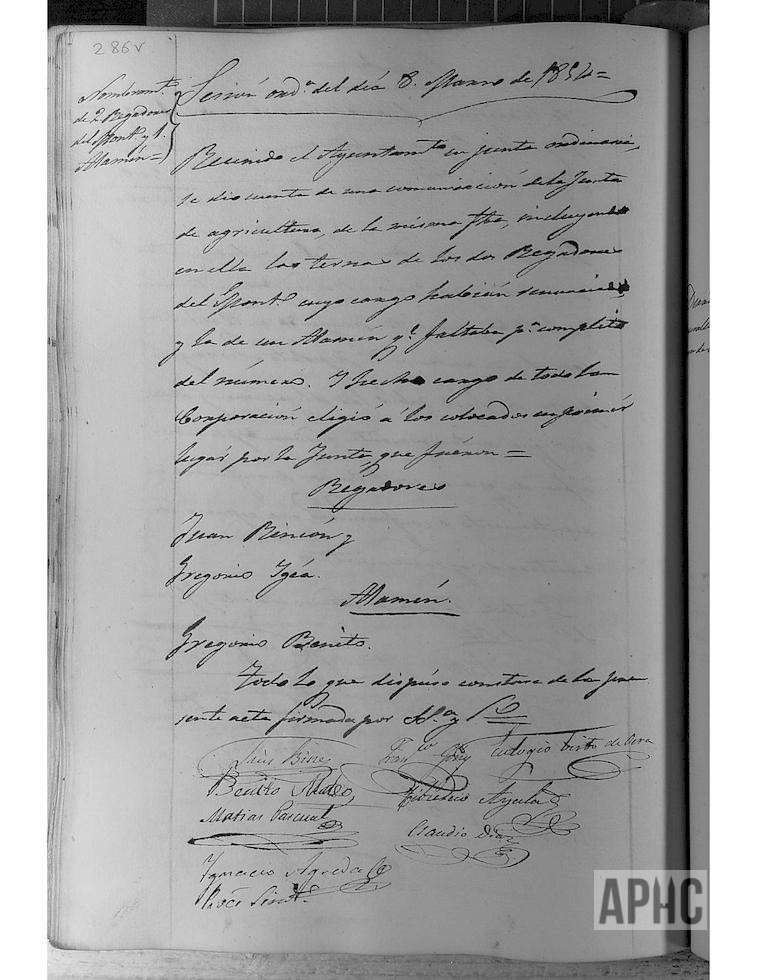 286v
Nombramt.
de 2 Regadores
del Mont. y 1.
Alamín =
Sesión ord.ª del día 8. Marzo de 1854 =
Reunido el Ayuntamto en junta ordinaria,
se dio cuenta de una comunicación de la Junta
de agricultura, de la misma fha, incluyendo
en ella las ternas de los dos Regadores
del Mont. cuyo cargo habían renunciado,
y la de un Alamín q.e faltaba p.a completo
del número. Y hecho cargo de todo la
Corporación eligió á los colocados en primer
lugar por la Junta, que fueron =
Regadores
Juan Rincón y
Gregorio Igéa.
Alamín.
Gregorio Benito.
Todo lo que dispuso constase de la pre
sente acta firmada por
Fran.co Eulogio Brito de Vera
Benito
Matias Pascual Tiburcio Ayala
Claudio Diaz
Ignacio Agreda
APHC